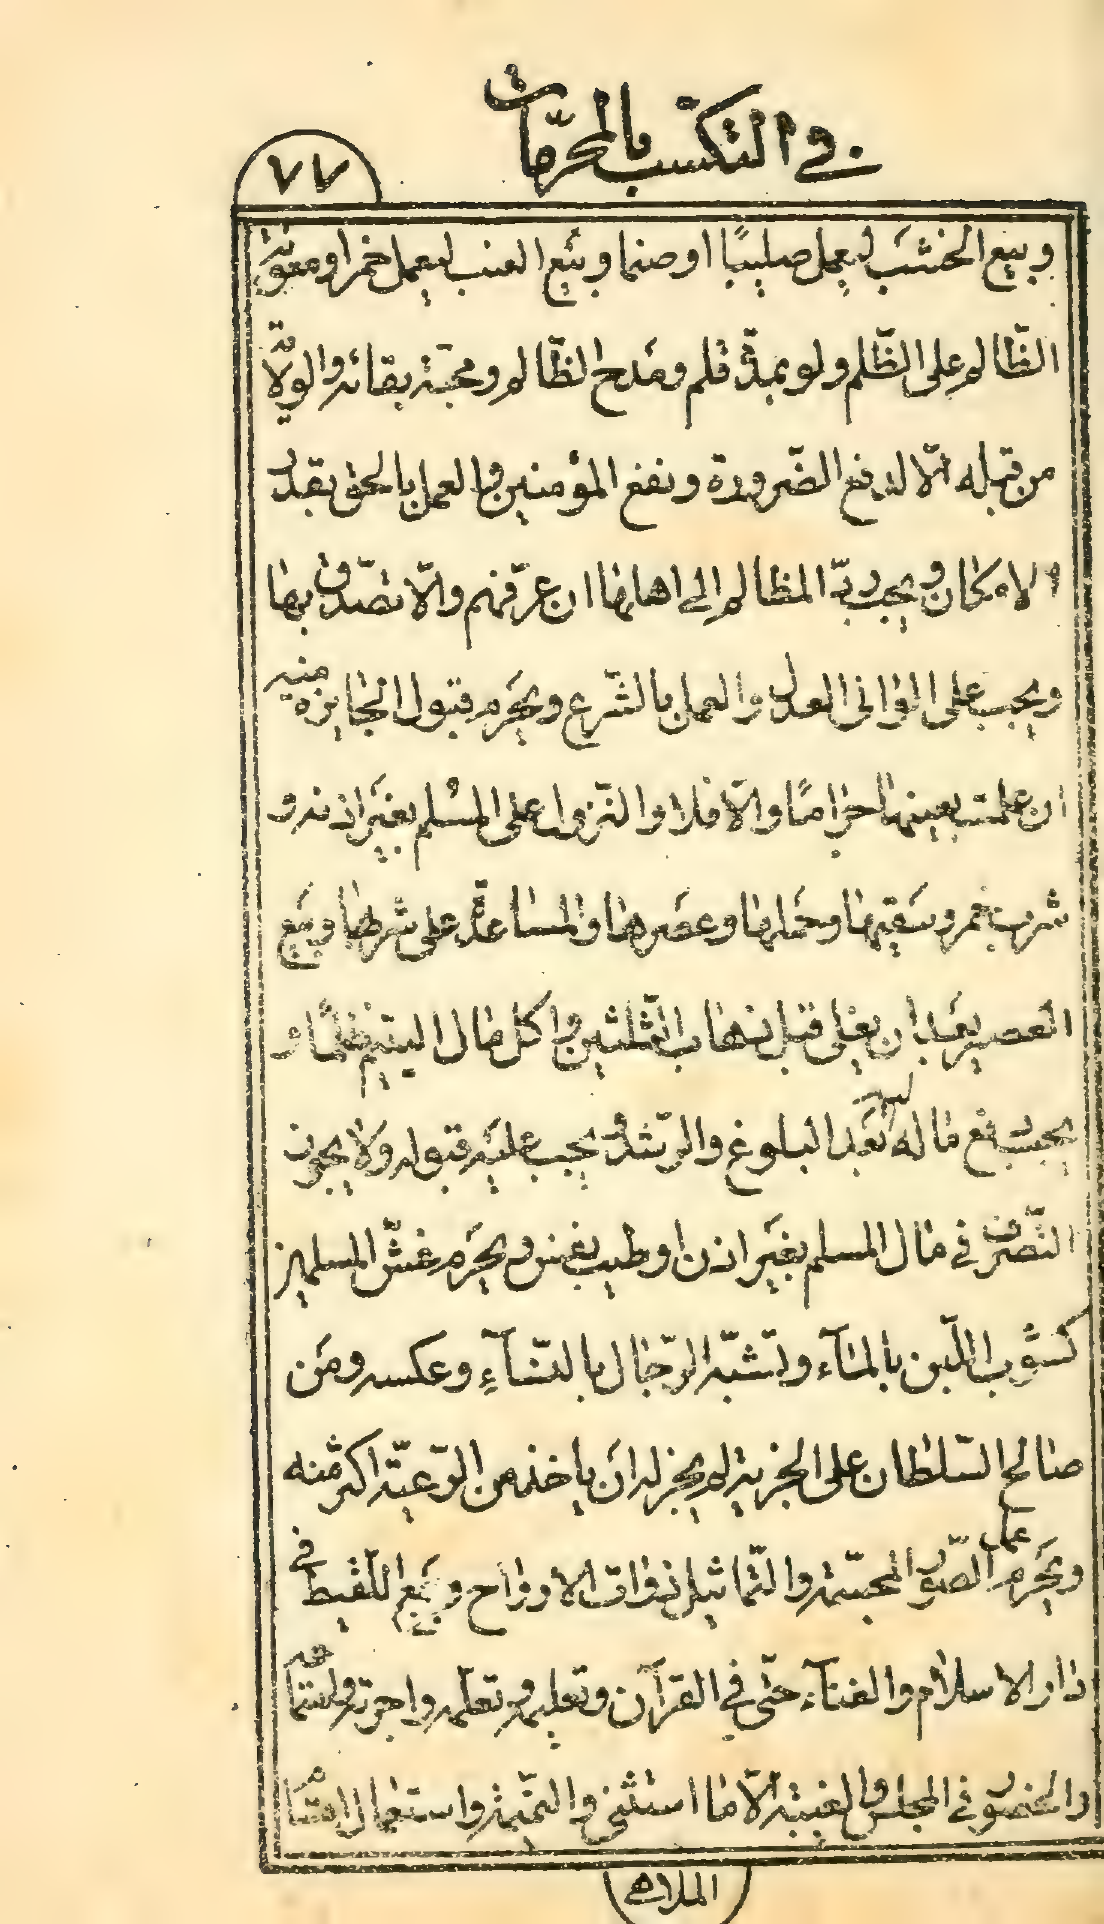 في التكسب بالمحرّمات
٧٧
وبيع الخشب ليعمل صليبًا او صنما وبيع العنب ليعمل خمرا ومعونة
الظّالم على الظّلم ولو بمدّة قلم ومدح الظّالم ومحبّة بقائه والولاية
من قبله الّا لدفع الضّرورة ونفع المؤمنين والعمل بالحق بقدر
الامكان ويجب ردّ المظالم الى اهلها ان عرّفهم والّا تصدّق بها
ويجب على الوالى العدل والعمل بالشّرع ويحرم قبول الجايزة منه
ان علمت بعينها حرامًا والّا فلا والنّزول على المسلم بغير اذنه و
شرب خمر وسقيها وحملها وعصرها والمساعدة على شربها وبيع
العصير بعد ان يغلى قبل ذهاب الثّلثين واكل مال اليتيم ظلمًا و
يجب دفع ماله اليه بعد البلوغ والرّشد ويجب عليه قبوله ولا يجوز
التّصرّف في مال المسلم بغير اذن او طيب نفس ويحرم غشّ المسلمين
كشوب اللّبن بالمآء وتشبّه الرّجال بالنّسآء وعكسه ومن
صالح السّلطان على الجزية لم يجز له ان ياخذ من الرّعيّة اكثر منه
ويحرم عمل الصّور المجسّمة والتّماثيل ذوات الارواح وبيع اللّقيط في
دار الاسلام والغنآء حتّى في القرآن وتعليمه وتعلّمه واجرته واستماعه
والحضور في المجلس والغيبة الّا ما استثنى والنّميمة واستعمال اقسام
الملاهي